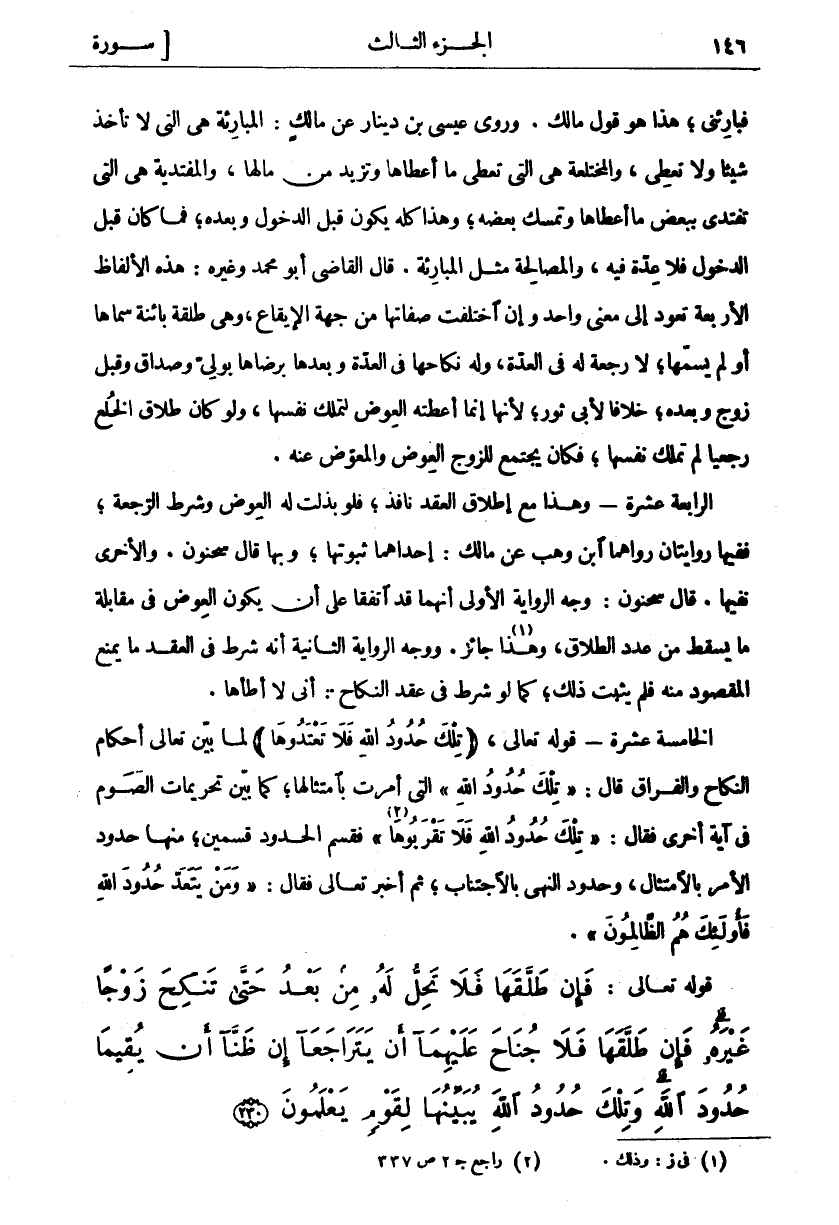 ١٤٦ الجـزء الثـالث [ ســورة
فبارِئنى ؛ هذا هو قول مالك . وروى عيسى بن دينار عن مالكٍ : المبارِئة هى التى لا تأخذ
شيئا ولا تعطِى ، والمختلعة هى التى تعطى ما أعطاها وتزيد من مالها ، والمفتدية هى التى
تفتدى ببعض ما أعطاها وتمسك بعضه ؛ وهذا كله يكون قبل الدخول وبعده ؛ فما كان قبل
الدخول فلا عِدّة فيه ، والمصالحة مثـل المبارِئة . قال القاضى أبو محمد وغيره : هذه الألفاظ
الأربعة تعود إلى معنى واحد وإن ٱختلفت صفاتها من جهة الإيقاع ، وهى طلقة بائنة سماها
أو لم يسمّها ؛ لا رجعة له فى العدّة ، وله نكاحها فى العدّة وبعدها برضاها بولىّ وصداق وقبل
زوج وبعده ؛ خلافا لأبى ثور ؛ لأنها إنما أعطته العِوض لتملك نفسها ، ولو كان طلاق الخُلع
رجعيا لم تملك نفسها ؛ فكان يجتمع للزوج العِوض والمعوّض عنه .
الرابعة عشرة — وهـذا مع إطلاق العقد نافذ ؛ فلو بذلت له العِوض وشرط الرّجعة ؛
ففيها روايتان رواهما ٱبن وهب عن مالك : إحداهما ثبوتها ؛ وبها قال سحنون . والأخرى
نفيها . قال سحنون : وجه الرواية الأولى أنهما قد ٱتفقا على أن يكون العِوض فى مقابلة
ما يسقط من عدد الطلاق ، وهـذا(١) جائز . ووجه الرواية الثـانية أنه شرط فى العقـد ما يمنع
المقصود منه فلم يثبت ذلك ؛ كما لو شرط فى عقد النكاح : أنى لا أطأها .
الخامسة عشرة — قوله تعالى ، ﴿ تِلْكَ حُدُودُ اللهِ فَلَا تَعْتَدُوهَا ﴾ لمـا بيّن تعالى أحكام
النكاح والفـراق قال : « تِلْكَ حُدُودُ اللهِ » التى أمرت بٱمتثالها ؛ كما بيّن تحريمات الصَـوم
فى آية أخرى فقال : « تِلْكَ حُدُودُ اللهِ فَلَا تَقْرَبُوهَا(٢) » فقسم الحـدود قسمين ؛ منهـا حدود
الأمر بالٱمتثال ، وحدود النهى بالٱجتناب ؛ ثم أخبر تعـالى فقال : « وَمَنْ يَتَعَدَّ حُدُودَ اللهِ
فَأُولَئِكَ هُمُ الظَّالِمُونَ » .
قوله تعـالى : فَإِن طَلَّقَهَا فَلَا تَحِلُّ لَهُۥ مِنۢ بَعْـدُ حَتَّىٰ تَنكِحَ زَوْجًا
غَيْرَهُۥ فَإِن طَلَّقَهَا فَـلَا جُنَاحَ عَلَيْهِمَآ أَن يَتَرَاجَعَآ إِن ظَنَّآ أَن يُقِيمَا
حُدُودَ ٱللَّهِ وَتِلْكَ حُدُودُ ٱللَّهِ يُبَيِّنُهَا لِقَوْمٍ يَعْلَمُونَ ۝٢٣٠
(١) فى ز : وذلك . (٢) راجع جـ ٢ ص ٣٣٧